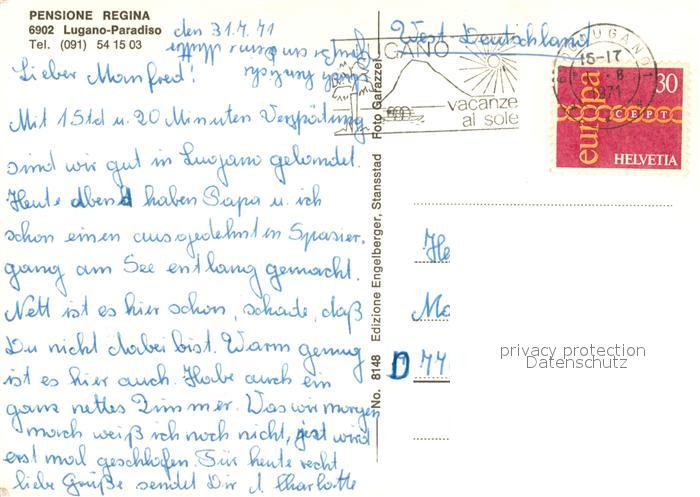 PENSIONE REGINA
6902 Lugano-Paradiso
Tel. (091) 54 15 03
den 31.7.71
Lieber Manfred!
Mit 1 Std u. 20 Minuten Verspätung
sind wir gut in Lugano gelandet.
Heute Abend haben Papa u. ich
schon einen ausgedehnten Spazier-
gang am See entlang gemacht.
Nett ist es hier schon, schade, daß
Du nicht dabei bist. Warm genug
ist es hier auch. Habe auch ein
ganz nettes Zimmer. Was wir morgen
mach weiß ich noch nicht, jetzt wird
erst mal geschlafen. Für heute recht
liebe Grüße sendet Dir Charlotte
No. 8148 Edizione Engelberger, Stansstad Foto Garazzer
West Deutschland
LUGANO
vacanze
al sole
LUGANO 1
15-17
8
1971
europa
30
CEPT
HELVETIA
He
Ma
D 44
privacy protection
Datenschutz